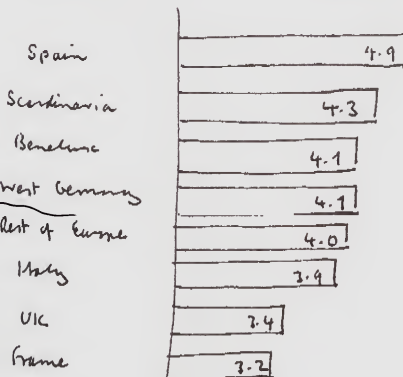 Spain 4.9
Scandinavia 4.3
Benelux 4.1
West Germany 4.1
Rest of Europe 4.0
Italy 3.9
UK 3.4
France 3.2